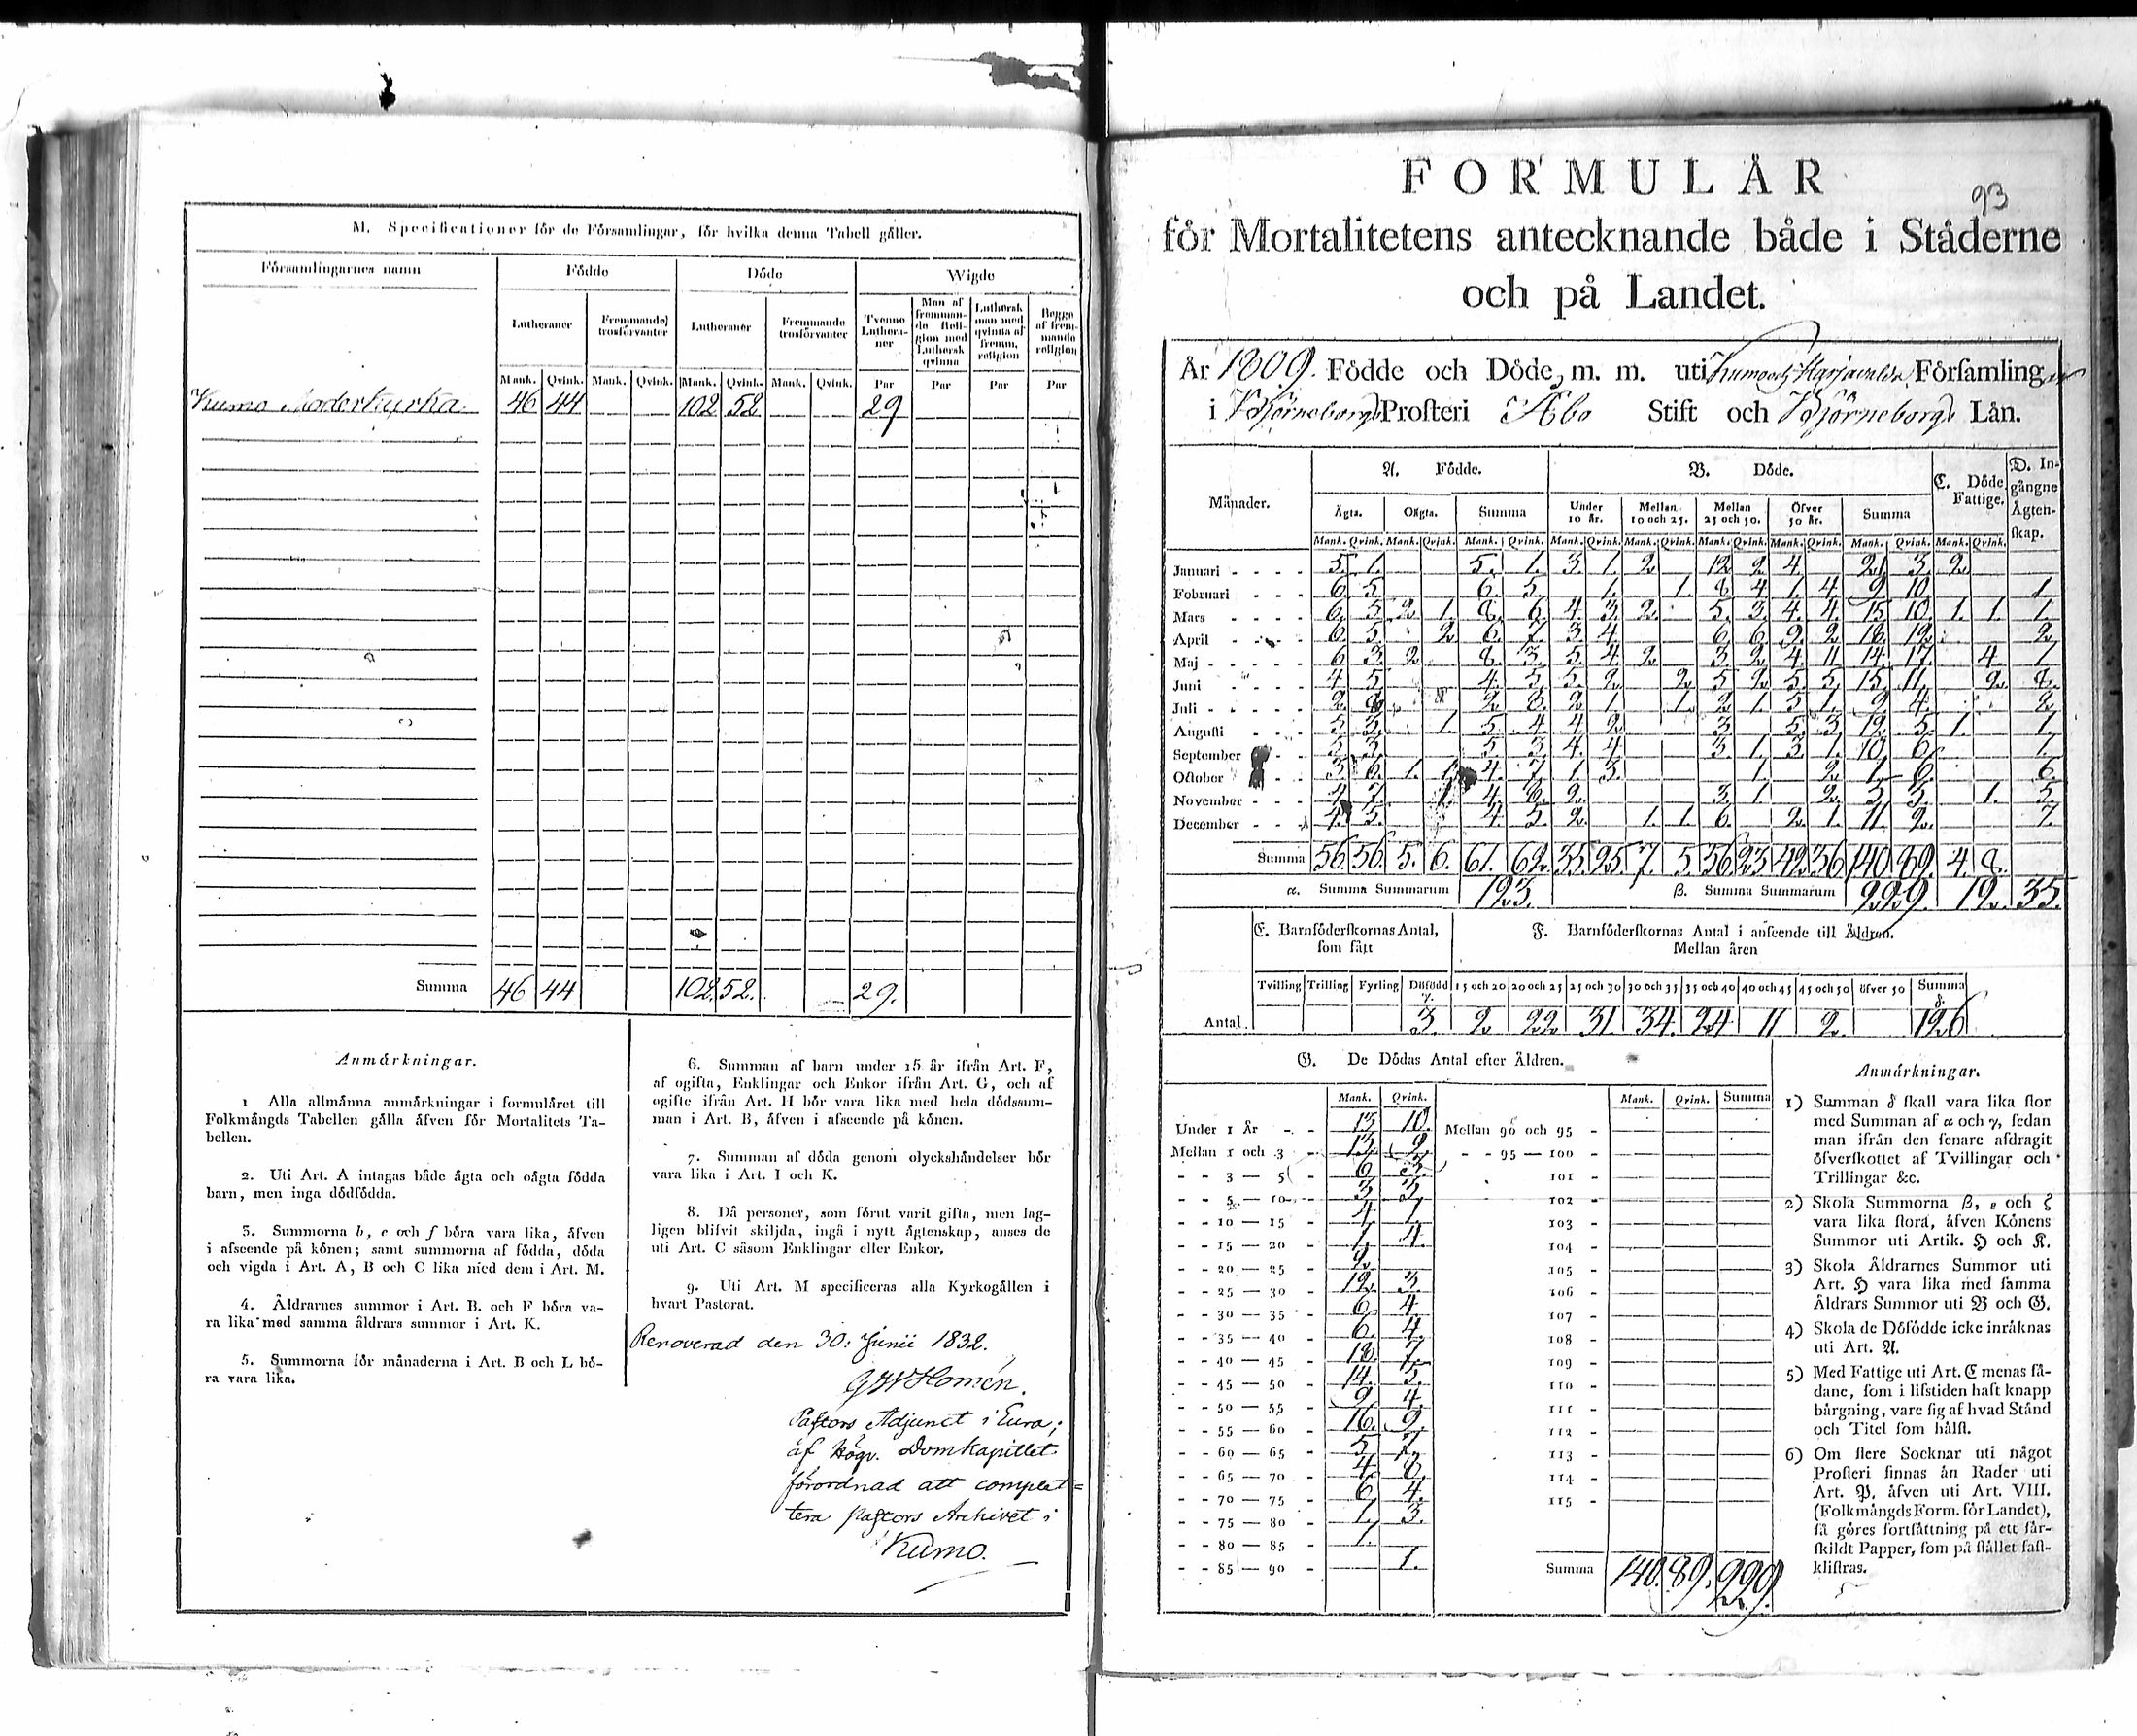 M. Specificationer för de Församlingar, för hvilka denna Tabell gäller.
Församlingarnes namn Födde Döde Wigde
Lutheraner Fremmande trosförvanter Lutheraner Fremmande trosförvanter Tvenne Lutheraner Man af fremmande Religion med Luthersk qvinna Luthersk man med qvinna af fremm. religion Begge af fremmande religion
Mank. Qvink. Mank. Qvink. Mank. Qvink. Mank. Qvink. Par Par Par Par
Kumo Moderkyrka. 46 44 102 52 29
Summa 46 44 102. 52. 29.
Anmärkningar.
1 Alla allmänna anmärkningar i formuläret till
Folkmängds Tabellen gälla äfven för Mortalitets Ta-
bellen.
2. Uti Art. A intagas både ägta och oägta födda
barn, men inga dödfödda.
3. Summorna b, e och f böra vara lika, äfven
i afseende på könen; samt summorna af födda, döda
och vigda i Art. A, B och C lika med dem i Art. M.
4. Åldrarnes summor i Art. B. och F böra va-
ra lika med samma åldrars summor i Art. K.
5. Summorna för månaderna i Art. B och L bö-
ra vara lika.
6. Summan af barn under 15 år ifrån Art. F,
af ogifta, Enklingar och Enkor ifrån Art. G, och af
ogifte ifrån Art. H bör vara lika med hela dödssum-
man i Art. B, äfven i afseende på könen.
7. Summan af döda genom olyckshändelser bör
vara lika i Art. I och K.
8. Då personer, som förut varit gifta, men lag-
ligen blifvit skiljda, ingå i nytt ägtenskap, anses de
uti Art. C såsom Enklingar eller Enkor.
9. Uti Art. M specificeras alla Kyrkogällen i
hvart Pastorat.
Renoverad den 30: Junii 1832.
GW Homén.
Pastors Adjunct i Eura;
af Högv. Domkapitlet
förordnad att complet=
tera pastors Archivet i
Kumo.
93
FORMULÄR
för Mortalitetens antecknande både i Städerne
och på Landet.
År 1809. Födde och Döde, m. m. uti Kumo och Harjavalda Församling
i Björneborgs Prosteri Åbo Stift och Björneborgs Län.
Månader. A. Födde. B. Döde. C. Döde Fattige. D. Ingångne Ägtenskap.
Ägta. Oägta. Summa Under 10 År. Mellan 10 och 25. Mellan 25 och 50. Öfver 50 År. Summa
Mank. Qvink. Mank. Qvink. Mank. Qvink. Mank. Qvink. Mank. Qvink. Mank. Qvink. Mank. Qvink. Mank. Qvink. Mank. Qvink.
Januari 5. 1. 5. 1. 3. 1. 2 12 2 4 21 3 2
Februari 6. 5 6. 5. 1. 1. 8 4 1. 4 9 10 1
Mars 6. 5 2 1. 8. 6 4. 3. 2. 5. 3. 4. 4. 15 10. 1. 1. 1
April 6 5 2 6. 7. 3 4 6 6 2
Maj 6 3 2 8. 3. 5. 4. 2 3. 2 4. 11 14. 17. 4. 7
Juni 4 5 4. 5 5. 2 2 5 2 5 5 15 11 2
Juli
Augusti 5 3. 1. 5. 4 4 2 3 5 3 12 5. 1. 1
September 5 3 5 3 4. 4 3 1. 3 1. 10 6 1.
October 3 6. 1. 1 4. 7 1 3. 1 2 1 6. 6
November 4 7 1 3. 1 2 5 3. 1. 5
December 4. 5 4. 5 2. 1. 1. 6. 2. 1. 11 2. 7.
Summa 56 56 5. 6. 61. 62. 35. 25. 7. 5 56. 23 42. 36 140. 89. 4. 8.
α. Summa Summarum 123. β. Summa Summarum 229. 12. 35.
E. Barnföderskornas Antal, som fått F. Barnföderskornas Antal i anseende till Åldren. Mellan åren
Tvilling Trilling Fyrling Dödfödd γ. 15 och 20 20 och 25 25 och 30 30 och 35 35 och 40 40 och 45 45 och 50 öfver 50 Summa δ.
Antal. 3. 2 22 31. 34. 24 11 2. 126
G. De Dödas Antal efter Åldren.
Mank. Qvink. Mank. Qvink. Summa
Under 1 År 15 10. Mellan 90 och 95
Mellan 1 och 3 13 9 95 — 100
3 — 5 101
5 — 10 3 3 102
10 — 15 4 1. 103
15 — 20 1 4. 104
20 — 25 2. 105
25 — 30 12. 3. 106
30 — 35 6 4 107
35 — 40 6. 4. 108
40 — 45 18. 7. 109
45 — 50 14. 5. 110
50 — 55 9 4. 111
55 — 60 16. 9. 112
60 — 65 5 7. 113
65 — 70 4. 8 114
70 — 75 6 4. 115
75 — 80 1. 3.
80 — 85 1.
85 — 90 1. Summa 140. 89. 229.
Anmärkningar.
1) Summan δ skall vara lika stor
med Summan af α och γ, sedan
man ifrån den senare afdragit
öfverskottet af Tvillingar och
Trillingar &c.
2) Skola Summorna β, ε och ζ
vara lika stora, äfven Könens
Summor uti Artik. H och K.
3) Skola Åldrarnes Summor uti
Art. H vara lika med samma
Åldrars Summor uti B och G.
4) Skola de Döfödde icke inräknas
uti Art. A.
5) Med Fattige uti Art. C menas så-
dane, som i lifstiden haft knapp
bärgning, vare sig af hvad Stånd
och Titel som hälst.
6) Om flere Socknar uti något
Prosteri finnas än Rader uti
Art. P. äfven uti Art. VIII.
(Folkmängds Form. för Landet),
så göres fortsättning på ett sär-
skildt Papper, som på stället fast-
klistras.